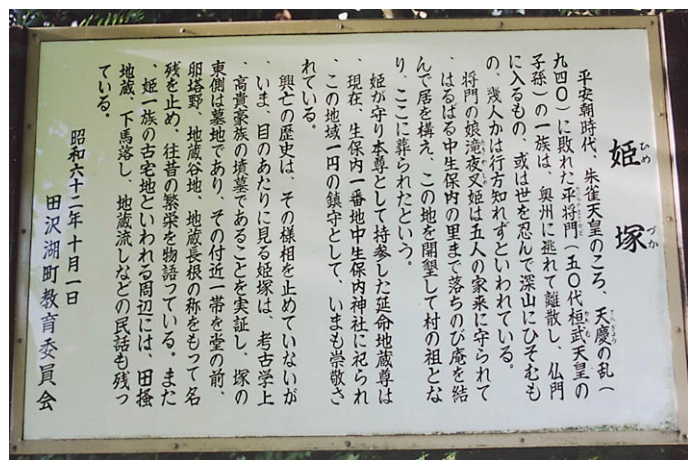 姫塚
ひめづか
平安朝時代、朱雀天皇のころ、天慶の乱（
九四〇）に敗れた平将門（五〇代桓武天皇の
子孫）の一族は、奥州に逃れて離散し、仏門
に入るもの、或は世を忍んで深山にひそむも
の、幾人かは行方知れずといわれている。
将門の娘滝夜叉姫は五人の家来に守られて
、はるばる中生保内の里まで落ちのび庵を結
んで居を構え、この地を開墾して村の祖とな
り、ここに葬られたという。
姫が守り本尊として持参した延命地蔵尊は
、現在、生保内一番地中生保内神社に祀られ
、この地域一円の鎮守として、いまも崇敬さ
れている。
興亡の歴史は、その様相を止めていないが
、いま、目のあたりに見る姫塚は、考古学上
、高貴豪族の墳墓であることを実証し、塚の
東側は墓地であり、その付近一帯を堂の前、
卵塔野、地蔵谷地、地蔵長根の称をもって名
残を止め、往昔の繁栄を物語っている。また
、姫一族の古宅地といわれる周辺には、田掻
地蔵、下馬落し、地蔵流しなどの民話も残っ
ている。
昭和六十二年十月一日
田沢湖町教育委員会